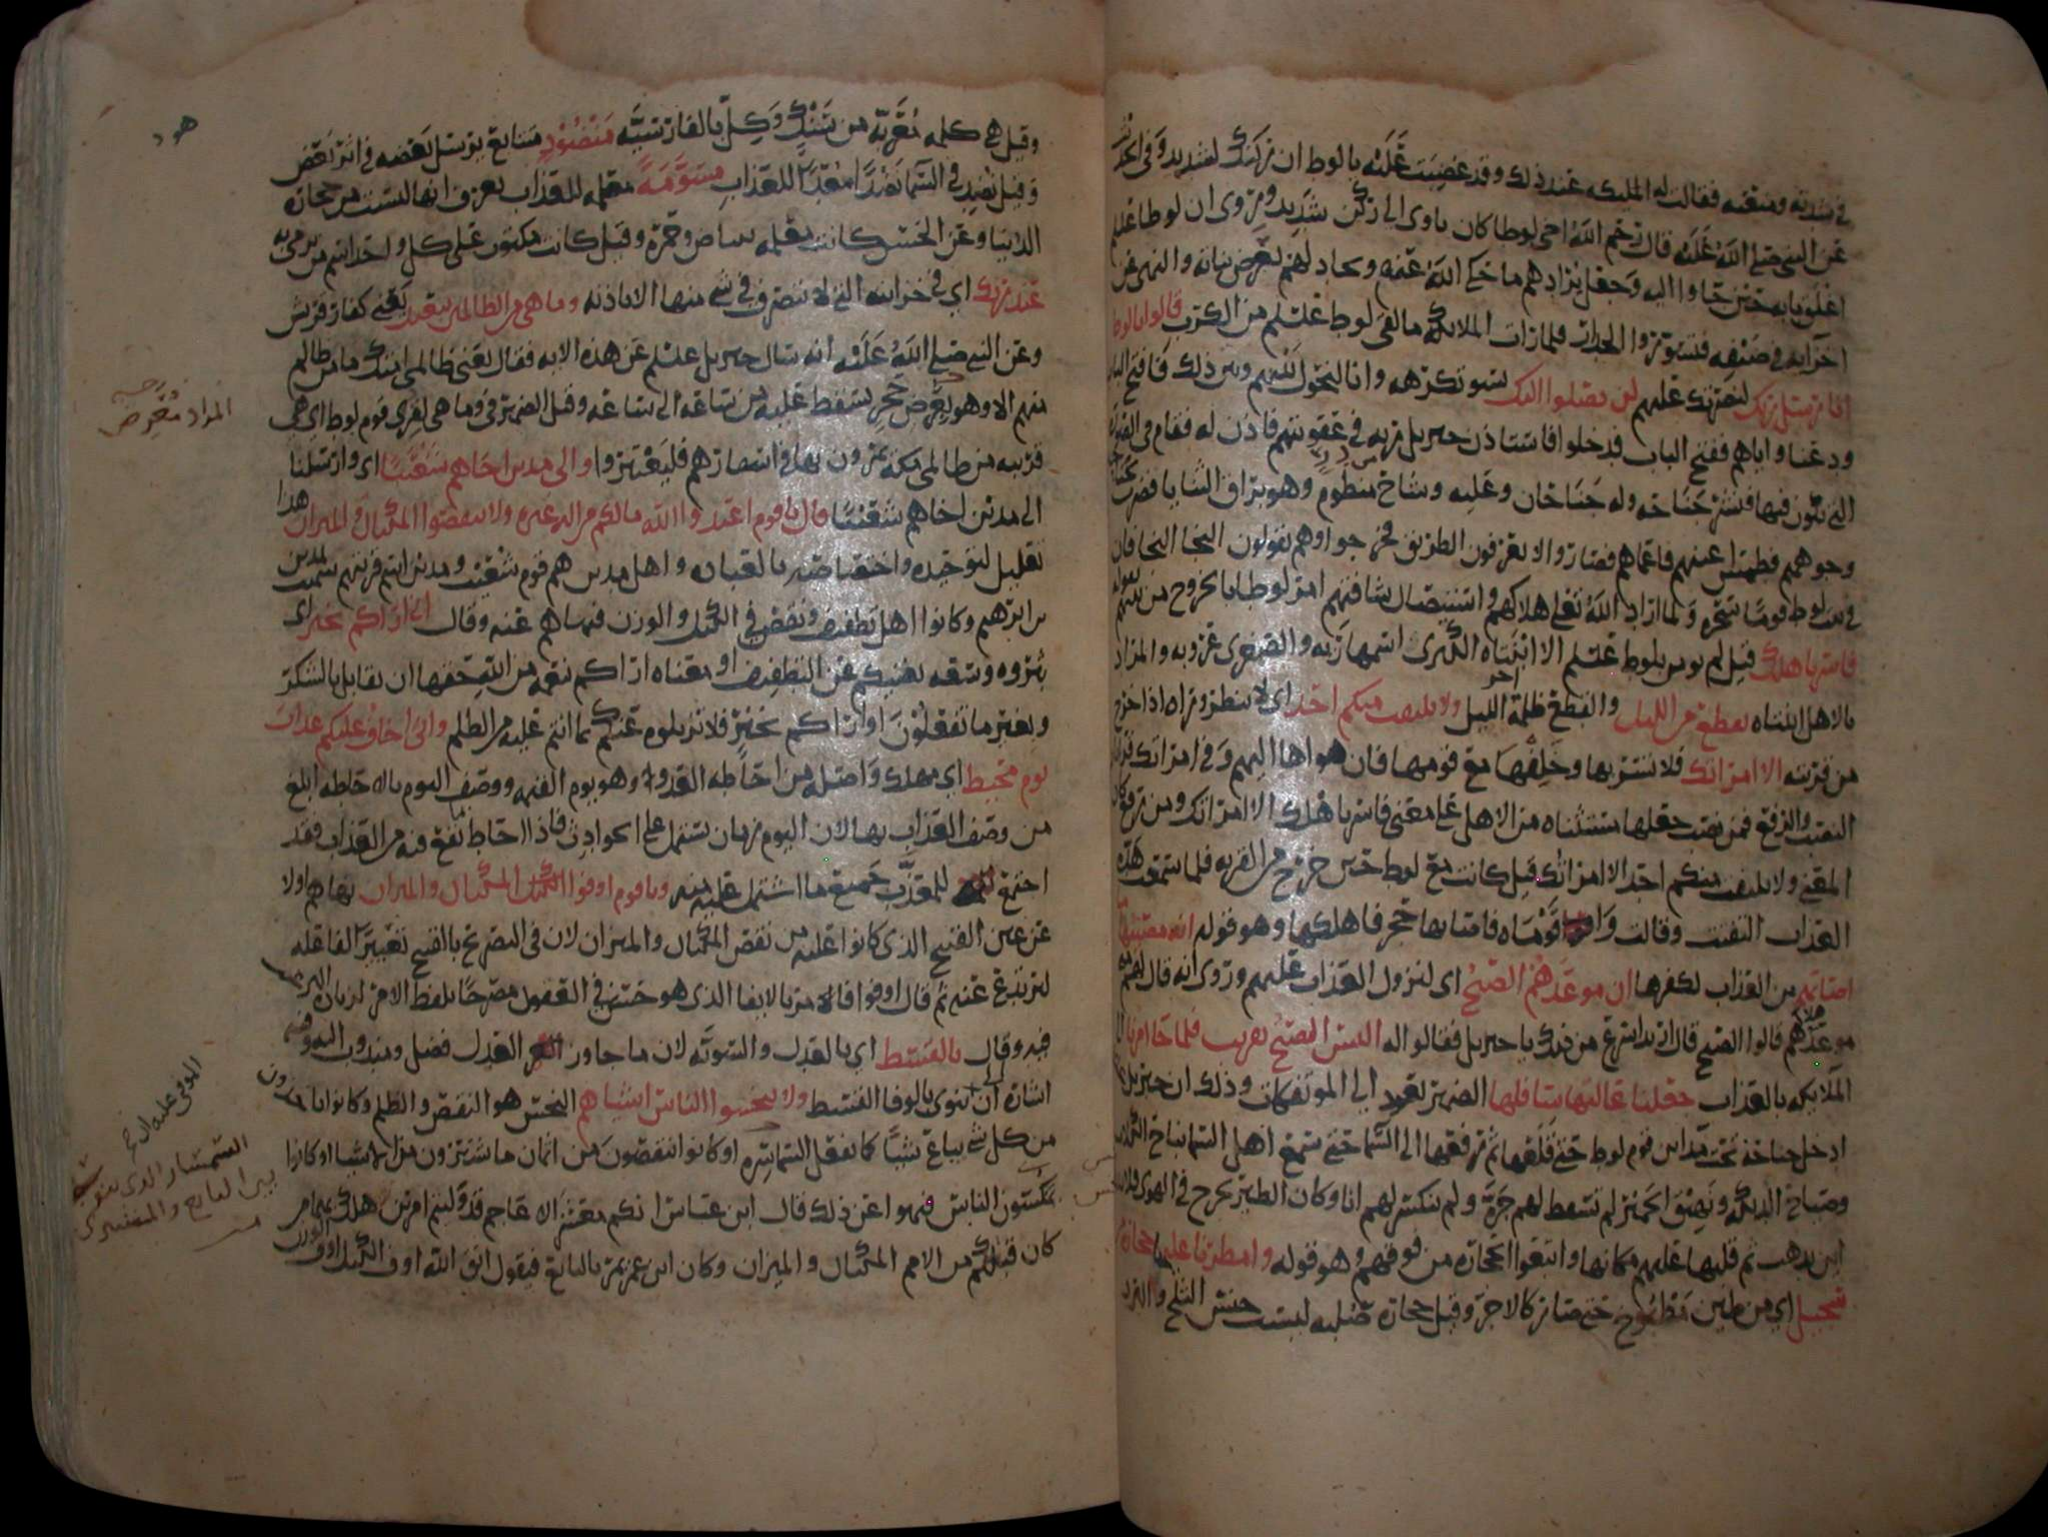 في شدته ومنعته فقالت له الملائكة عند ذلك وقد غضبت عليه يا لوط ان ركنك لشديد وفي الحديث
عن النبي صلى الله عليه قال رحم الله اخي لوطا كان ياوى الى ركن شديد وروى ان لوطا عليلم
اغلق بابه حين جاوا اليه وجعل يرادهم ما حكى الله عنه ويجادلهم لعرض بناته والنهي عن
اخزايه في ضيفه فتسوروا الجدار فلما رات الملائكة ما لقي لوط عليلم من الكرب قالوا يا لوط
انا رسل ربك لنصرتك عليهم لن يصلوا اليك بسو تكرهه وانا لنحول بينهم وبين ذلك فافتح الباب
ودعنا واياهم ففتح الباب فدخلوا فاستاذن جبريل ربه في عقوبتهم فاذن له فقام في الصورة
التي يكون فيها فنشر جناحه وله جناحان وعليه وشاح منظوم وهو براق الثنايا فضرب بجناحه
وجوههم فطمس اعينهم فاعماهم فصاروا لا يعرفون الطريق فخرجوا وهم يقولون النجا النجا فان
في بيت لوط قوما سحرة ولما اراد الله تعلى هلاكهم واستيصال شافتهم امر لوطا بالخروج من بينهم بقوله
فاسر باهلك قيل لم يومن بلوط عليلم الا ابنتاه الكبرى اسمها ريه والصغرى عروبه والمراد
بالاهل ابنتاه بقطع من الليل والقطع ظلمة اخر الليل ولا يلتفت منكم احد اي لا ينظر وراه اذا خرج
من قريته الا امراتك فلا تسر بها وخلفها مع قومها فان هواها اليهم وفي امراتك قراتان
النصب والرفع فمن نصب جعلها مستثناه من الاهل على معنى فاسر باهلك الا امراتك ومن رفع كان
المعنى ولا يلتفت منكم احد الا امراتك قيل كانت مع لوط حين خرج من القرية فلما سمعت هدة
العذاب التفتت وقالت وا قوماه فاصابها حجر فاهلكها وهو قوله انه مصيبها
اصابهم من العذاب لكفرها ان موعدهم الصبح اى لنزول العذاب عليهم وروى انه قال لهم متى
موعد هلاكهم قالوا الصبح قال اريد اسرع من ذلك يا جبريل فقالوا له اليس الصبح بقريب فلما جا امرنا اي
الملايكه بالعذاب جعلنا عاليها سافلها الضمير يعود الى الموتفكات وذلك ان جبريل
ادخل جناحه تحت مداين قوم لوط حتى قلعها ثم رفعها الى السما حتى سمع اهل السما نباح الكلاب
وصياح الديكة ونهيق الحمير لم تسقط لهم جرة ولم ينكسر لهم انا وكان الطير يخرج في الهوى فلا يدري
اين يذهب ثم قلبها عليهم مكانها واتبعوا الحجارة من فوقهم وهو قوله وامطرنا عليها حجارة من
سجيل اي من طين مطبوخ حتى صار كالاجر وقيل حجارة صلبه ليست جنس الثلج والبرد
هود
وقيل هي كلمه معربه من سنك وكل بالفارسيه منضود متتابع يرسل بعضه في اثر بعض
وقيل نضد في السما نضدا معدا للعذاب مسومة معلمه للعذاب يعرف انها ليست من حجارة
الدنيا وعن الحسن كانت معلمه ببياض وحمرة وقيل كانت مكتوب على كل واحد اسم من يرمى به
عند ربك اي في خزاينه التي لا يتصرف في شي منها الا باذنه وما هي من الظالمين ببعيد يعني كفار قريش
وعن النبي صلى الله عليه انه سال جبريل عليلم عن هذه الايه فقال يعني ظالمي امتك ما من ظالم
منهم الا وهو بعرض حجر يسقط عليه من ساعه الى ساعه وقيل الضمير في وما هي لقرى قوم لوط اي هي
قريبه من ظالمي مكة يمرون بها في اسفارهم فليعتبروا والى مدين اخاهم شعيبا اي وارسلنا
الى مدين اخاهم شعيبا قال يا قوم اعبدوا الله ما لكم من اله غيره ولا تنقصوا المكيال والميزان هذا
تعليل لتوحيده واختصاصه بالعباده واهل مدين هم قوم شعيب ومدين اسم قريتهم سميت بمدين
بن ابرهيم وكانوا اهل تطفيف ونقص في الكيل والوزن فنهاهم عنه وقال اني اراكم بخير اى
بثروه وسعه يغنيكم عن التطفيف او معناه اراكم بنعمه من الله حقها ان تقابل بالشكر
وبغير ما تفعلون او اراكم بخير فلا تزيلوه عنكم بما انتم عليه من الظلم واني اخاف عليكم عذاب
يوم محيط اي مهلك واصله من احاطه العدو وهو يوم القيمه ووصف اليوم بالاحاطه ابلغ
من وصف العذاب بها لان اليوم زمان يشتمل على الحوادث فاذا احاط بما يقع فيه من العذاب فقد
اجتمع للمعذب جميع ما اشتمل عليه منه ويا قوم اوفوا المكيال والميزان نهاهم اولا
عن عين القبيح الذي كانوا عليه من نقص المكيال والميزان لان في التصريح بالقبيح تعييرا لفاعله
ليرتدع عنه ثم قال اوفوا فالامر بالايفا الذي هو حسن في العقول مصرحا بلفظ الامر لزيادة الترغيب
فيه وقال بالقسط اي بالعدل والسوية لان ما جاوز العدل فضل ومندوب اليه وفيه
اشارة الى ان ينوى بالوفا القسط ولا تبخسوا الناس اشياهم البخس هو النقص والظلم وكانوا ياخذون
من كل شي يباع شيئا كما تفعل السماسره او كانوا ينقصون من اثمان ما يشترون من الاشيا او كانوا
يمكسون الناس فنهوا عن ذلك قال ابن عباس انكم معشر الاعاجم قد وليتم امرين هلك بهما من
كان قبلكم من الامم المكيال والميزان وكان ابن عمر يمر بالبائع فيقول اتق الله اوف الكيل اوف الوزن
المراد معرض
الموفي عليه ان
السمسار الذى يتوسط
بين البايع والمشترى